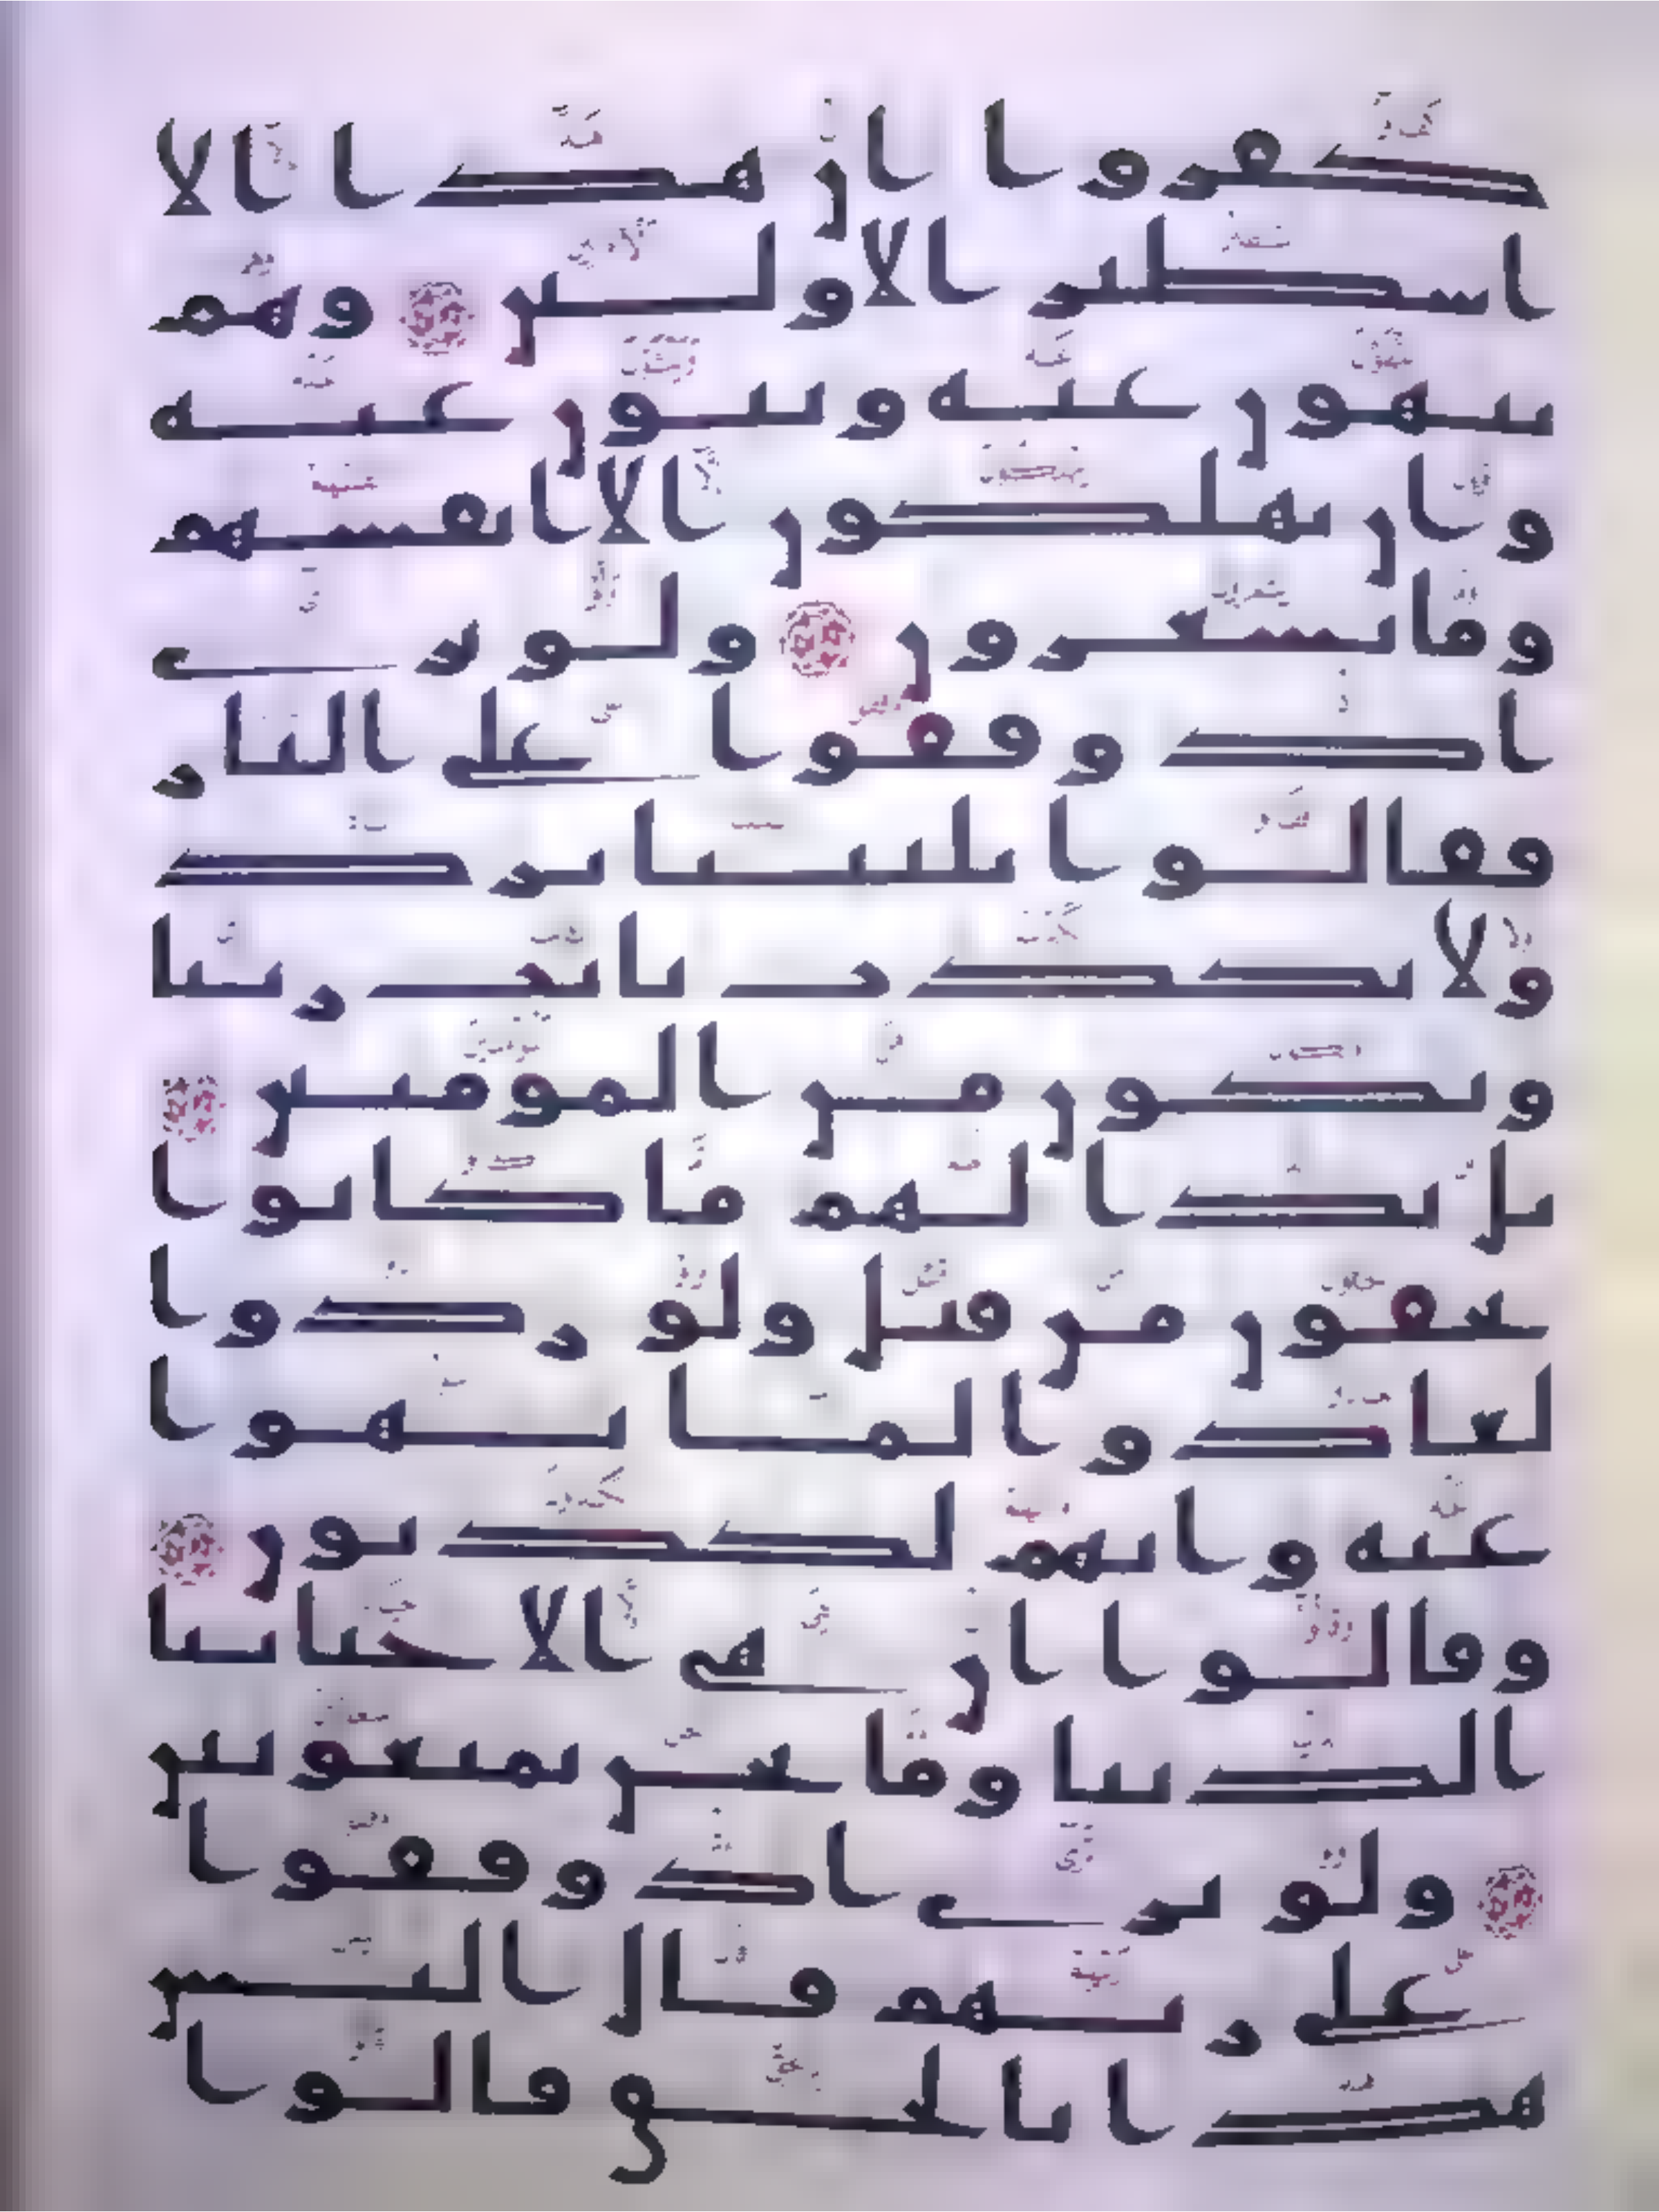 كفروا ان هذا الا
اسطير الاولين وهم
ينهون عنه وينون عنه
وان يهلكون الا انفسهم
وما يشعرون ولو ترى
اذ وقفوا على النار
فقالوا يليتنا نرد
ولا نكذب بايت ربنا
ونكون من المومنين
بل بدا لهم ما كانوا
يخفون من قبل ولو ردوا
لعادوا لما نهوا
عنه وانهم لكذبون
وقالوا ان هي الا حياتنا
الدنيا وما نحن بمبعوثين
ولو ترى اذ وقفوا
على ربهم قال اليس
هذا بالحق قالوا